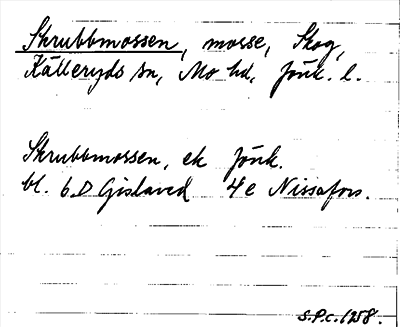 Skrubbmossen, mosse, Skog,
Källeryds sn, Mo hd, Jönk. l.
Skrubbmossen, ek Jönk.
bl. 6D Gislaved 4e Nissafors.
S.P.c. 1258.